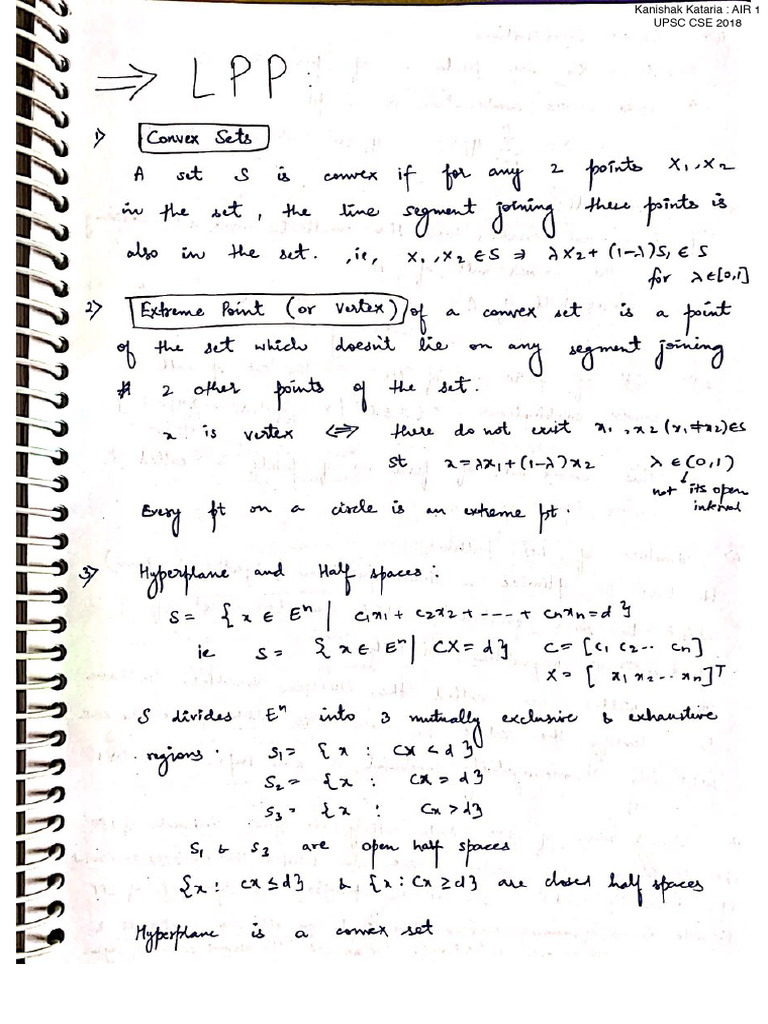 Kanishak Kataria : AIR 1
UPSC CSE 2018
⇒ LPP:
1) Convex Sets
A set S is convex if for any 2 points X₁, X₂
in the set, the line segment joining these points is
also in the set. , ie, X₁, X₂ ∈ S ⇒ λX₂ + (1-λ)S₁ ∈ S
for λ ∈ [0,1]
2) Extreme Point (or Vertex) of a convex set is a point
of the set which doesn't lie on any segment joining
2 other points of the set.
x is vertex ⇔ there do not exist x₁, x₂ (x₁≠x₂) ∈ S
st x = λx₁ + (1-λ)x₂ λ ∈ (0,1)
not its open
interval
Every pt on a circle is an extreme pt.
3) Hyperplane and Half spaces:
S = { x ∈ Eⁿ | c₁x₁ + c₂x₂ + ---- + cₙxₙ = d }
ie S = { x ∈ Eⁿ | CX = d } C = [c₁ c₂ .. cₙ]
X = [ x₁ x₂ .. xₙ]ᵀ
S divides Eⁿ into 3 mutually exclusive & exhaustive
regions. S₁ = { x : cx < d }
S₂ = { x : cx = d }
S₃ = { x : cx > d }
S₁ & S₃ are open half spaces
{x : cx ≤ d} & {x : cx ≥ d} are closed half spaces
Hyperplane is a convex set